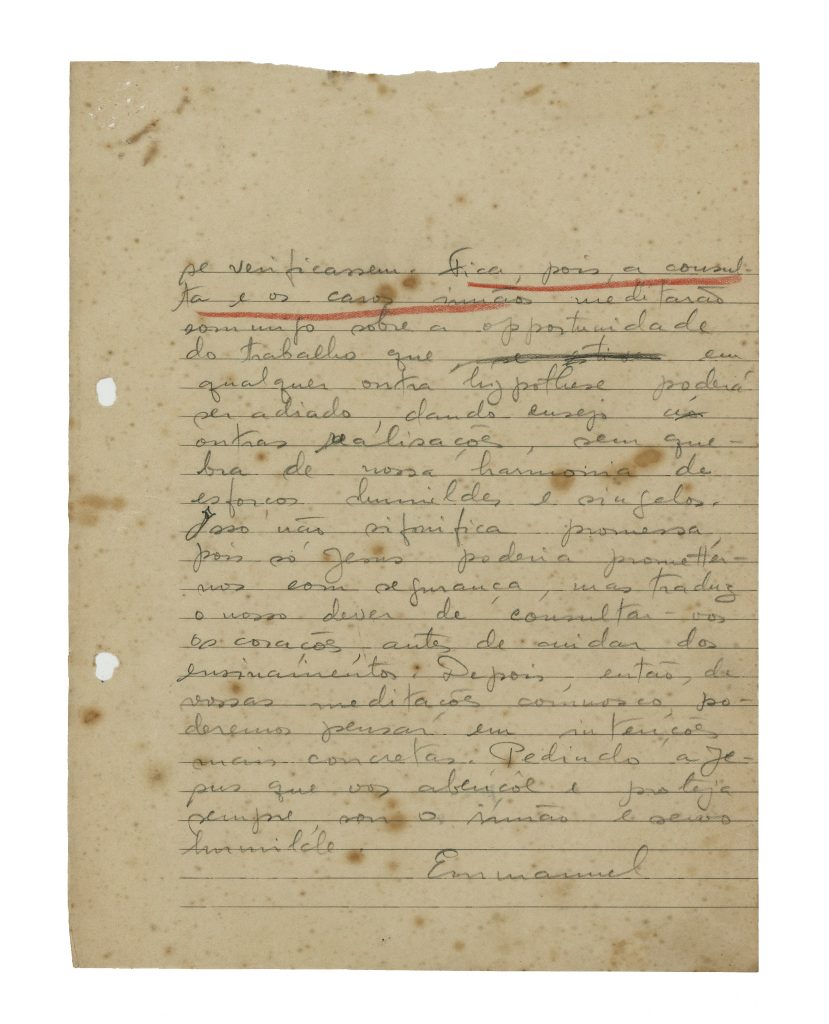 se verificassem. Fica, pois, a consul-
ta e os caros irmãos meditarão
commigo sobre a opportunidade
do trabalho que em
qualquer outra hypothese poderá
ser adiado, dando ensejo
outras realisações, sem que-
bra de nossa harmonia de
esforços humildes e singelos.
Isso não significa promessa,
pois só Jesus poderia prometter-
nos com segurança, mas traduz
o nosso dever de consultar-vos
os corações, antes de cuidar dos
ensinamentos. Depois, então, de
vossas meditações comnosco, po-
deremos pensar em intenções
mais concretas. Pedindo a Je-
sus que vos abençôe e proteja
sempre, sou o irmão e servo
humilde.
Emmanuel